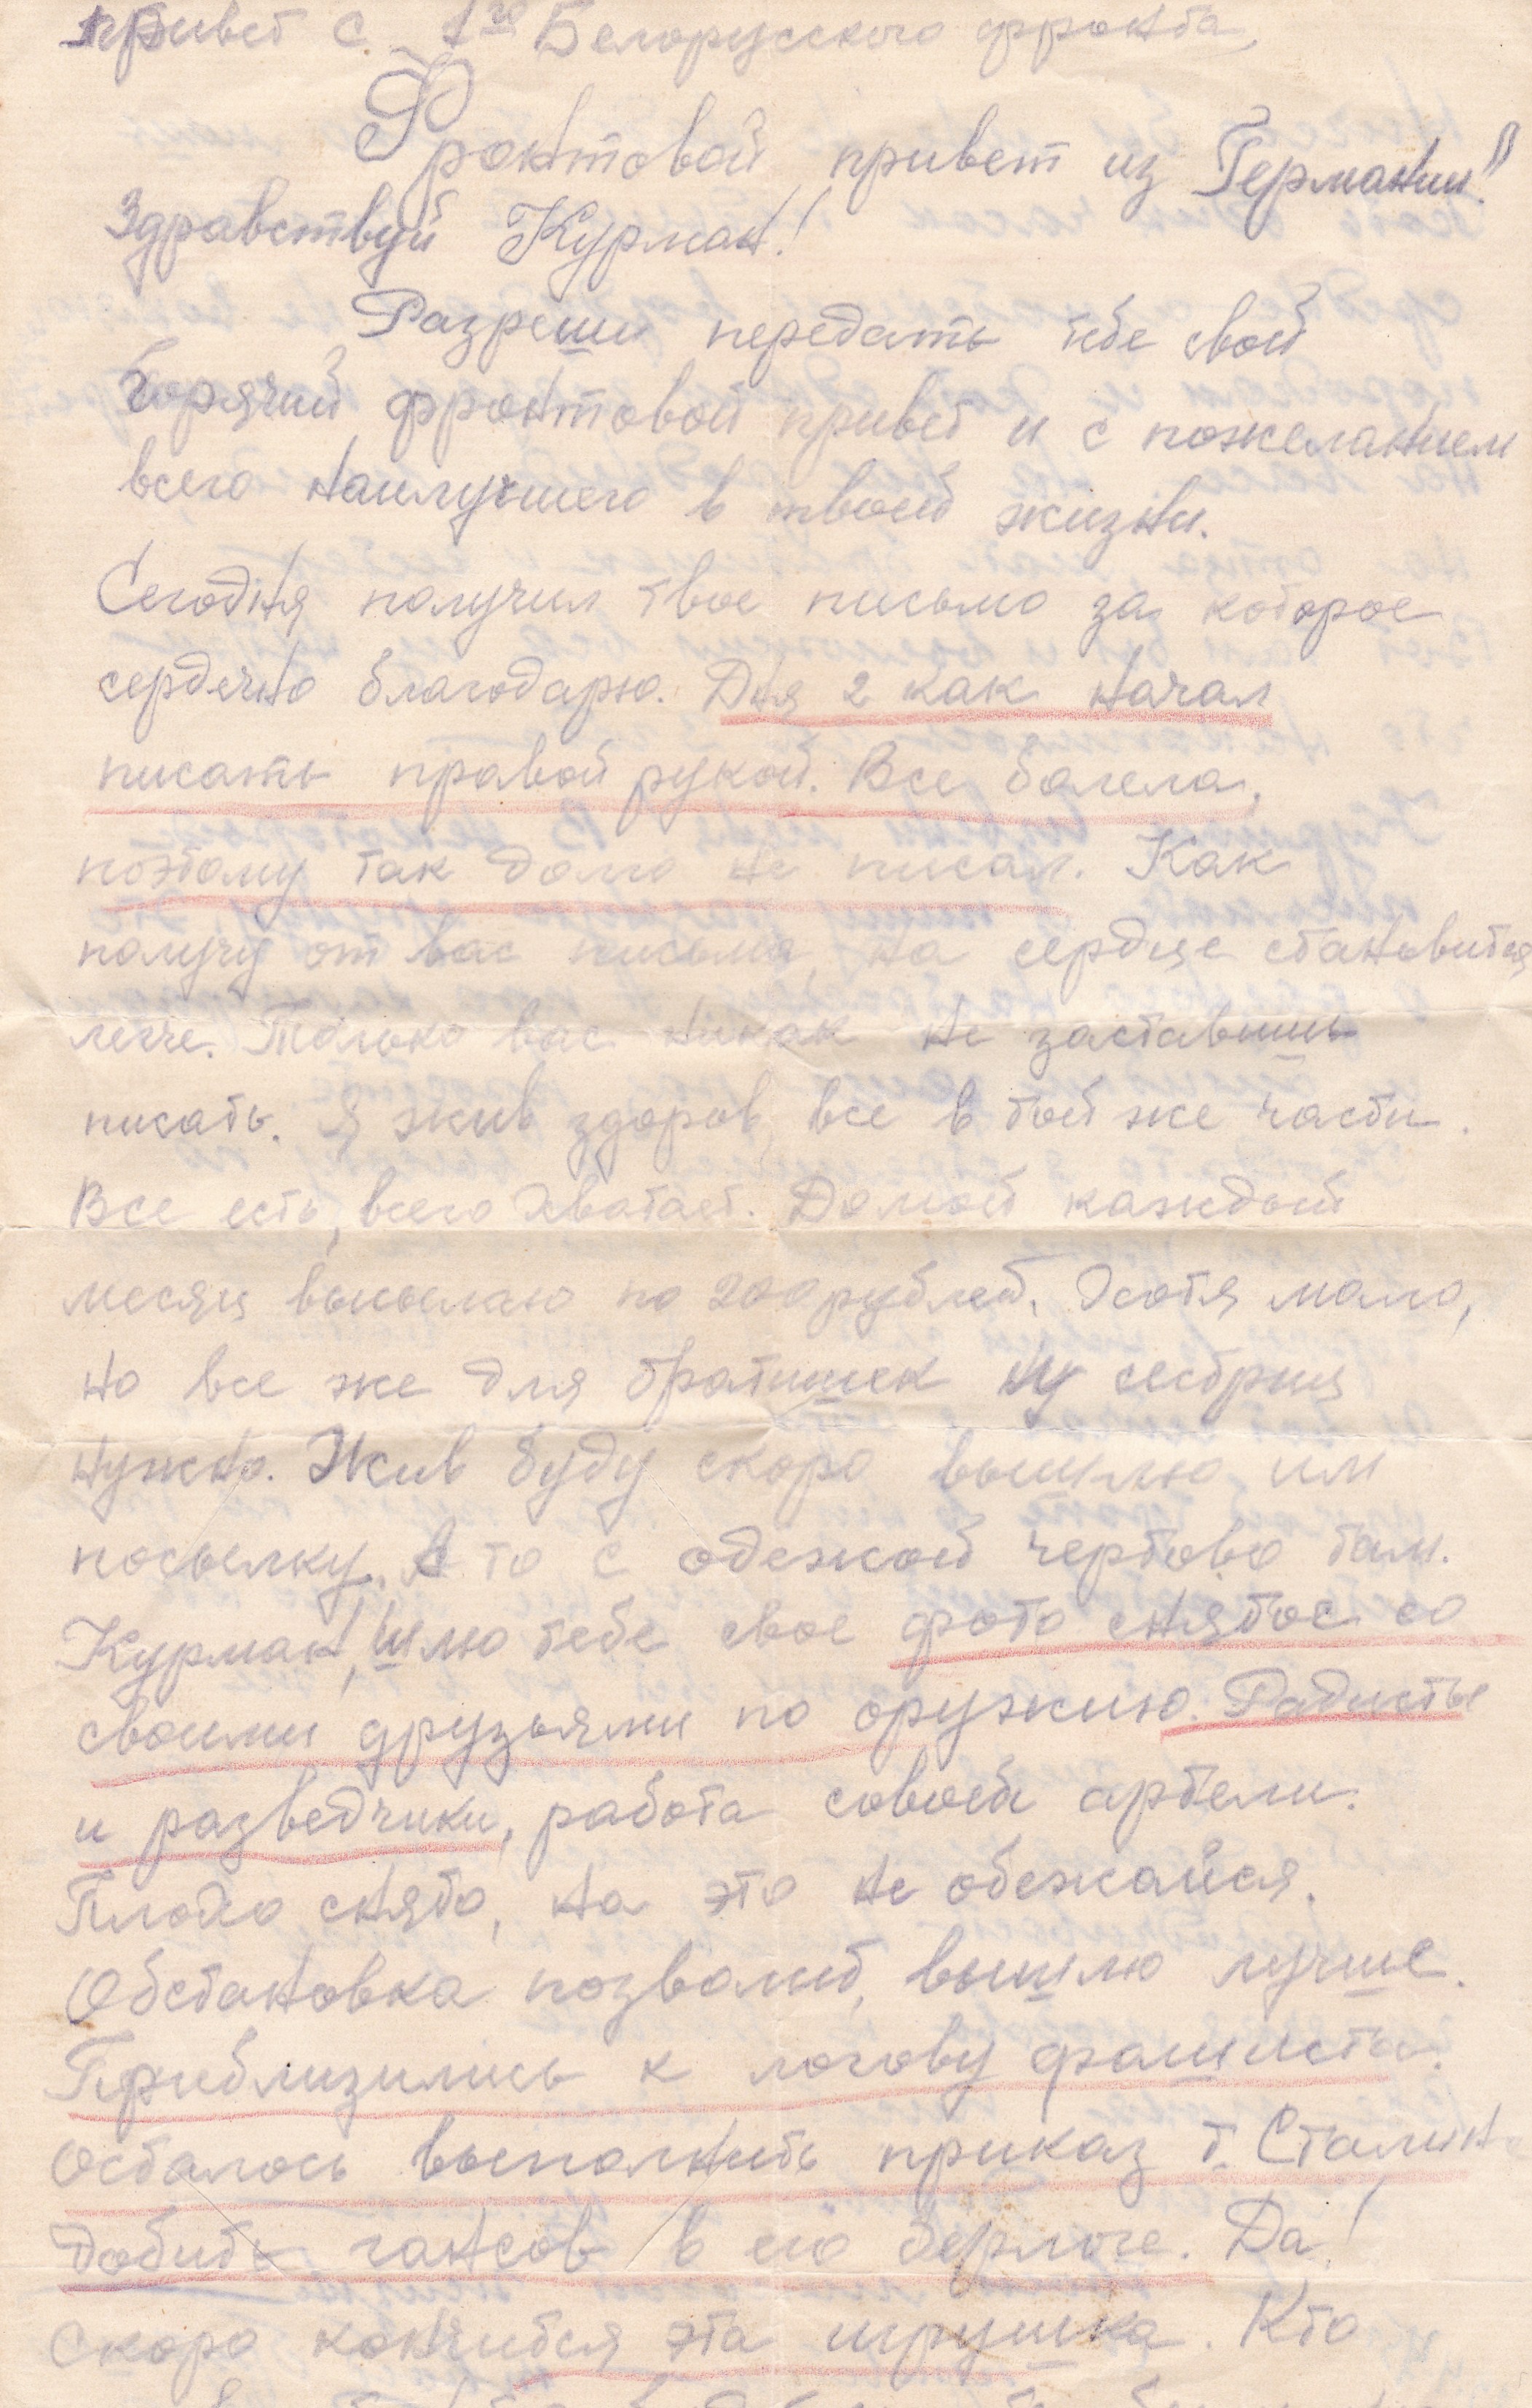 привет с 1го Белорусского фронта,
Фронтовой привет из Германии!"
Здравствуй Курман!
Разреши передать тебе свой
Горячий фронтовой привет и с пожеланием
всего наилучшего в твоей жизни.
Сегодня получил твое письмо за которое
сердечно благодарю. Дня 2 как начал
писать правой рукой. Все болела,
поэтому так долго не писал. Как
получу от вас письма, на сердце становится
легче. Только вас никак не заставишь
писать. Я жив здоров, все в той же части.
Все есть, всего хватает. Домой каждый
месяц высылаю по 200 рублей. Хотя мало,
но все же для братишек ну сестриц
нужно. Жив буду скоро вышлю им
посылку. А то с одежой чертово там.
Курман, Шлю тебе свое фото снятое со
своими друзьями по оружию. Радисты
и разведчики, работа совоей артели.
Плохо снято, на это не обежайся.
Обстановка позволит, вышлю лучше.
Приблизились к логову фашиста.
Осталось выполнить приказ т. Сталина
добить гансов в его берлоге. Да!
Скоро кончится эта игрушка. Кто